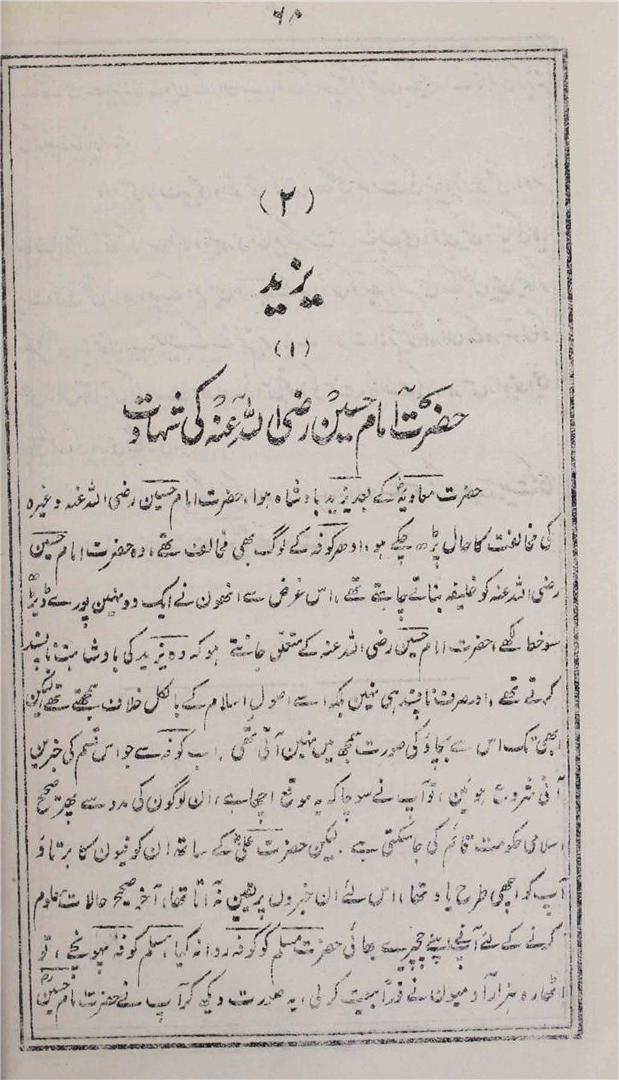 ۶۸
(۲)
یزید
(۱)
حضرت امام حسین رضی اللہ عنہ کی شہادت
حضرت معاویہؓ کے بعد یزید بادشاہ ہوا، حضرت امام حسین رضی اللہ عنہ وغیرہ
کی مخالفت کا حال پڑھ چکے ہو، ادھر کوفہ کے لوگ بھی مخالف تھے، وہ حضرت امام حسین
رضی اللہ عنہ کو خلیفہ بنانے چاہتے تھے، اس غرض سے انھون نے ایک دو نہین پورے ڈیڑھ
سو خط لکھے، حضرت امام حسین رضی اللہ عنہ کے متعلق جانتے ہو کہ وہ یزید کی بادشاہت ناپسند
کرتے تھے، اور صرف ناپسند ہی نہین بلکہ اسے اصول اسلام کے بالکل خلاف سمجھتے تھے لیکن
ابھی تک اس سے بچاؤ کی صورت سمجھ مین نہین آئی تھی، اب کوفہ سے جو اس قسم کی خبرین
آنی شروع ہوئین، تو آپ نے سوچا کہ یہ موقع اچھا ہے، ان لوگون کی مدد سے پھر صحیح
اسلامی حکومت قائم کی جا سکتی ہے، لیکن حضرت علیؓ کے ساتھ ان کوفیون کا برتاؤ
آپ کو اچھی طرح یاد تھا، اس لئے ان خبروں پر یقین نہ آتا تھا، آخر صحیح حالات معلوم
کرنے کے لئے آپنے اپنے چچیرے بھائی حضرت مسلم کو کوفہ روانہ کیا، مسلم کوفہ پہونچے، تو
اٹھارہ ہزار آدمیون نے فوراً بیعت کر لی، یہ صورت دیکھ کر آپ نے حضرت امام حسینؓ